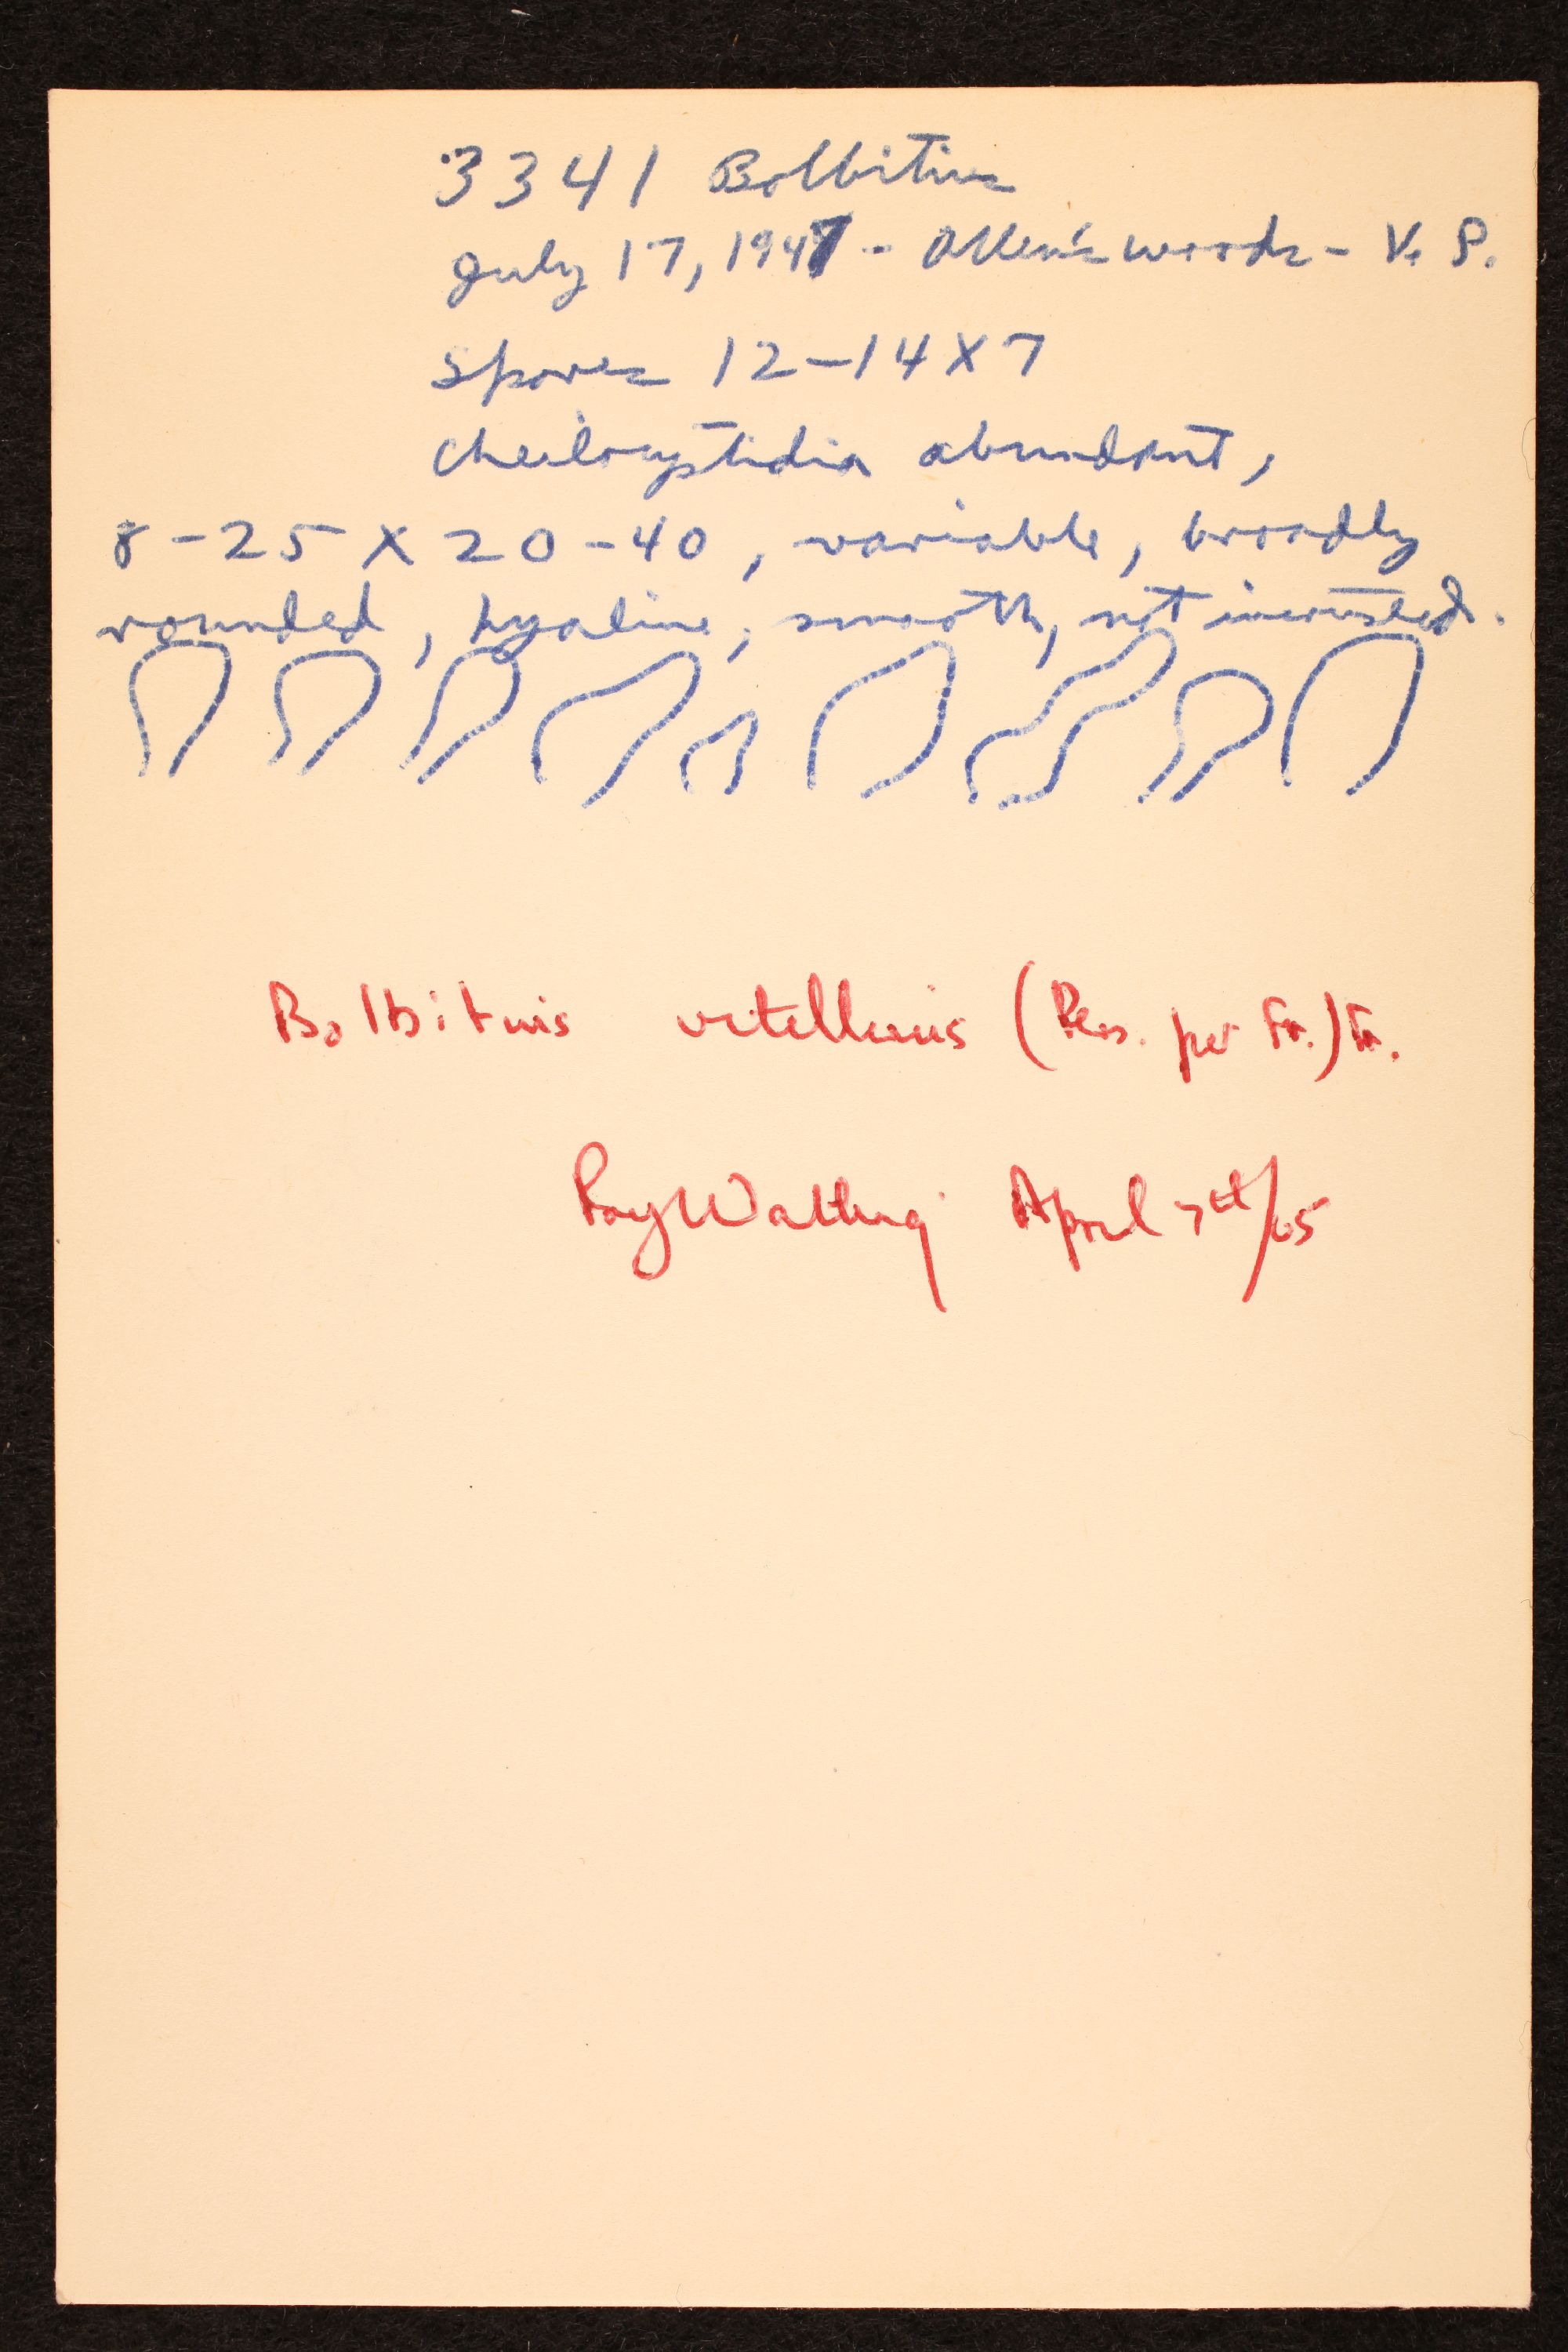 3341 Bolbitius
July 17, 1947 - Allen's woods - V. S.
Spores 12-14 X 7
Cheilocystidia abundant,
8-25 X 20-40, variable, broadly
rounded, hyaline, smooth, not incrusted.
Bolbitius vitellinus (Pers. per Fr.) Fr.
Roy Watling April 7th/65